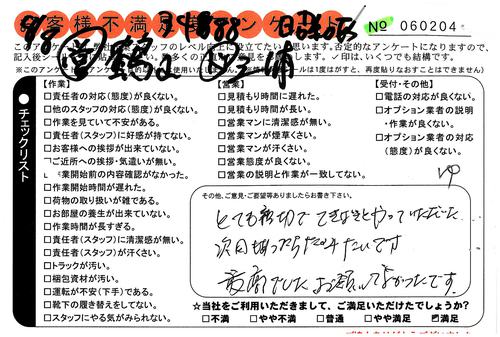 お客様不満足度アンケート
№ 060204
このアンケートは弊社のスタッフのレベル向上に役立てたい
思います。否定的なアンケートになりますので、
【作業】
□責任者の対応(態度)が良くない。
□他のスタッフの対応(態度)が良くない。
□作業を見ていて不安がある。
□責任者(スタッフ)に好感が持てない。
□お客様への挨拶が出来ていない。
ご近所への挨拶・気遣いが無い。
業開始前の内容確認がなかった。
□作業開始時間が遅れた。
□荷物の取り扱いが雑である。
□お部屋の養生が出来ていない。
□作業時間が長すぎる。
□責任者(スタッフ)に清潔感が無い。
□責任者(スタッフ)が汗くさい。
□トラックが汚い。
□梱包資材が汚い。
□運転が不安(下手)である。
□靴下の履き替えをしてない。
□スタッフにやる気がみられない。
【営業】
□見積もり時間に遅れた。
□見積もり時間が長い。
□営業マンに清潔感が無い。
□営業マンが煙草くさい。
□営業マンが汗くさい。
□営業態度が良くない。
□営業の説明と作業が一致してない。
【受付・その他】
□電話の対応が良くない。
□オプション業者の説明
・作業が良くない。
□オプション業者の対応
(態度)が良くない。
●チェックリスト
その他、ご意見・ご要望等ありましたらお書き下さい。
とても親切でてきぱきとやっていただいた
次回あったらたのみたいです
最高でした お願いしてよかったです
☆当社をご利用いただきまして、ご満足いただけたでしょうか?
□不満 □やや不満 □普通 □やや満足 ☑満足